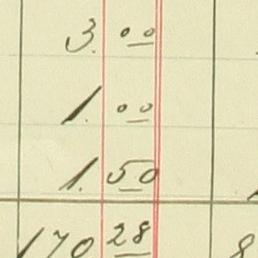 3.00
1.00
1.50
170 28 8